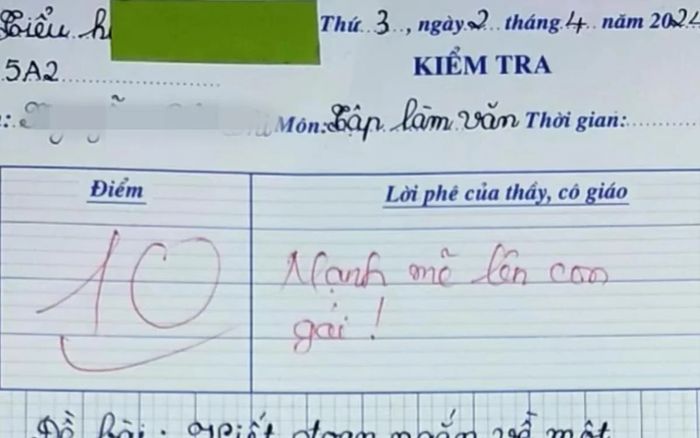 Tiểu h
Thứ 3, ngày 2 tháng 4 năm 2024
5A2
KIỂM TRA
Môn: Tập làm văn Thời gian:
Điểm
Lời phê của thầy, cô giáo
10
Mạnh mẽ lên con
gái!
Đề bài: Viết đoạn ngắn về một